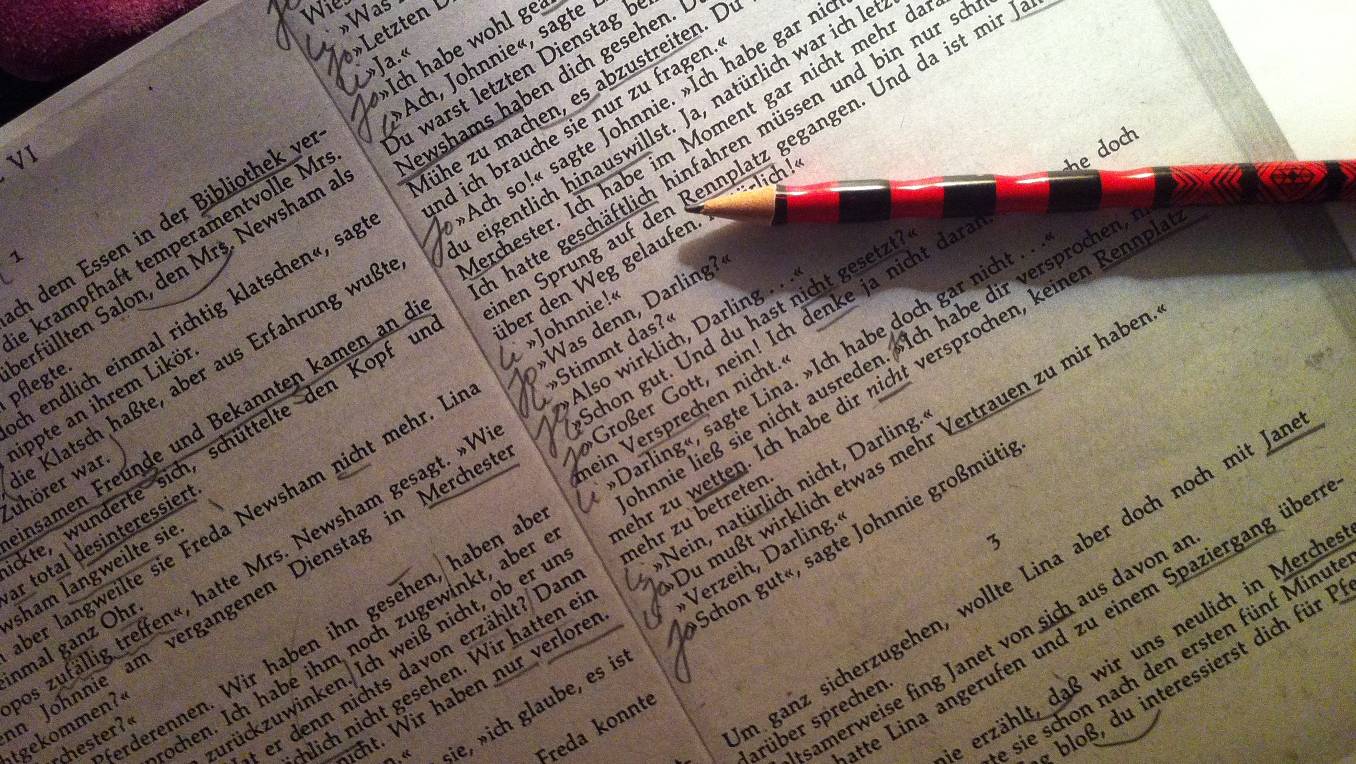 VI
1
nach dem Essen in der Bibliothek ver-
die krampfhaft temperamentvolle Mrs.
überfüllten Salon, den Mrs. Newsham als
pflegte.
doch endlich einmal richtig klatschen«, sagte
nippte an ihrem Likör.
die Klatsch haßte, aber aus Erfahrung wußte,
Zuhörer war.
meinsamen Freunde und Bekannten kamen an die
nickte, wunderte sich, schüttelte den Kopf und
war total desinteressiert.
wsham langweilte sie.
aber langweilte sie Freda Newsham nicht mehr. Lina
einmal ganz Ohr.
opos zufällig treffen«, hatte Mrs. Newsham gesagt. »Wie
enn Johnnie am vergangenen Dienstag in Merchester
tgekommen?«
rchester?«
Pferderennen. Wir haben ihn gesehen, haben aber
rochen. Ich habe ihm noch zugewinkt, aber er
zurückzuwinken. Ich weiß nicht, ob er uns
Hat er denn nichts davon erzählt? Dann
ächlich nicht gesehen. Wir hatten ein
nicht. Wir haben nur verloren.
sie, »ich glaube, es ist
Freda konnte
Wies
»Was
Jo »Letzten D
Li »Ja.«
Jo »Ich habe wohl gea
Li »Ach, Johnnie«, sagte L
Du warst letzten Dienstag bei
Newshams haben dich gesehen. Du
Mühe zu machen, es abzustreiten. Du
und ich brauche sie nur zu fragen.«
Jo »Ach so!« sagte Johnnie. »Ich habe gar nich
du eigentlich hinauswillst. Ja, natürlich war ich letz
Merchester. Ich habe im Moment gar nicht mehr dara
Ich hatte geschäftlich hinfahren müssen und bin nur schn
einen Sprung auf den Rennplatz gegangen. Und da ist mir Jan
über den Weg gelaufen. rlich!«
Li »Johnnie!«
Jo »Was denn, Darling?«
Li »Stimmt das?«
Jo »Also wirklich, Darling . . .«
Li »Schon gut. Und du hast nicht gesetzt?«
Jo »Großer Gott, nein! Ich denke ja nicht daran. che doch
mein Versprechen nicht.«
Li »Darling«, sagte Lina. »Ich habe doch gar nicht . . .«
Johnnie ließ sie nicht ausreden. Jo »Ich habe dir versprochen, ni
mehr zu wetten. Ich habe dir nicht versprochen, keinen Rennplatz
mehr zu betreten.
Li »Nein, natürlich nicht, Darling.«
Jo »Du mußt wirklich etwas mehr Vertrauen zu mir haben.«
Li »Verzeih, Darling.«
Jo »Schon gut«, sagte Johnnie großmütig.
3
Um ganz sicherzugehen, wollte Lina aber doch noch mit Janet
darüber sprechen.
ltsamerweise fing Janet von sich aus davon an.
hatte Lina angerufen und zu einem Spaziergang überre-
nie erzählt, daß wir uns neulich in Mercheste
gte sie schon nach den ersten fünf Minuten
bloß, du interessierst dich für Pfe